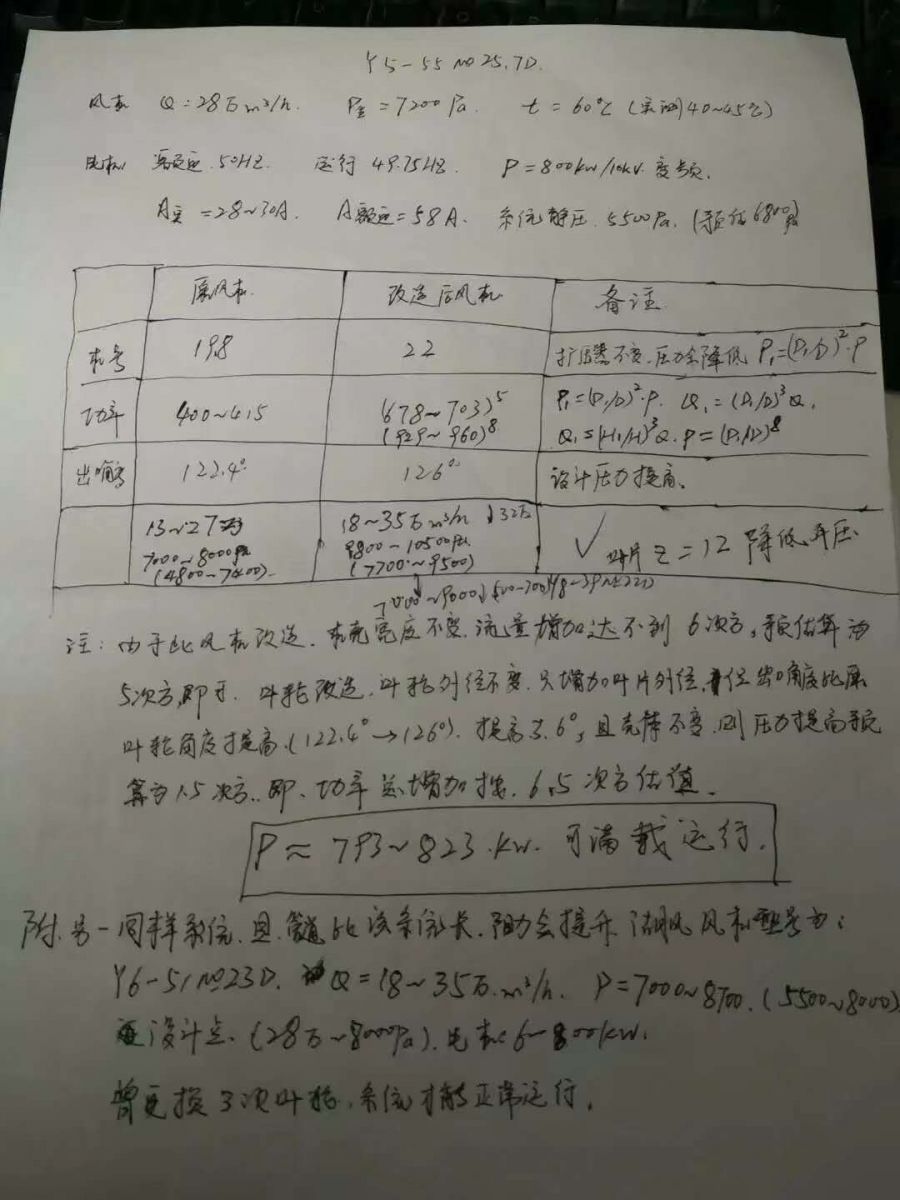 Y5-55 No25.7D.
风机 Q=28万m³/h. P全=7200Pa. t=60℃ (实测40~45℃)
电机 额定.50HZ. 运行 49.75HZ. P=800kw/10kV.变频.
A实=28~30A. A额定=58A. 系统静压.5500Pa. (预估6800Pa)
原风机. 改造后风机 备注
机号 19.8 22 扩压器不变.压力会降低 P₁=(D₁/D)²·P
功率 400~415 (678~703)⁵ P₁=(D₁/D)²·P. Q₁=(D₁/D)³Q.
(929~960)⁸ Q₁=(H₁/H)³Q. P=(D₁/D)⁸
出口角 122.4° 126° 设计压力提高、
13~27万 18~35万m³/h 32万
7000~8000Pa 9800~10500Pa √ 叶片Z=12 降低耳压
(4800~7400). (7700~9500)
注:由于此风机改造.机壳宽度不变.流量增加达不到6次方,预估算为
5次方,即于.叶轮改造.叶轮外径不变.只增加叶片外径,且出口角度比原
叶轮角度提高.(122.4°→126°).提高3.6°,且壳体不变.则压力提高预
算为1.5次方..即、功率总增加按.6.5次方估值.
P≈793~823.kw. 可满载运行.
附.另一同样系统.且.管道比该系统长.阻力会提升. 风机型号为:
Y6-51No23D. Q=18~35万.m³/h. P=7000~8700.(5500~8000)
设计点.(28万~8000Pa).电机 800kw.
曾更换3次叶轮.系统才能正常运行.